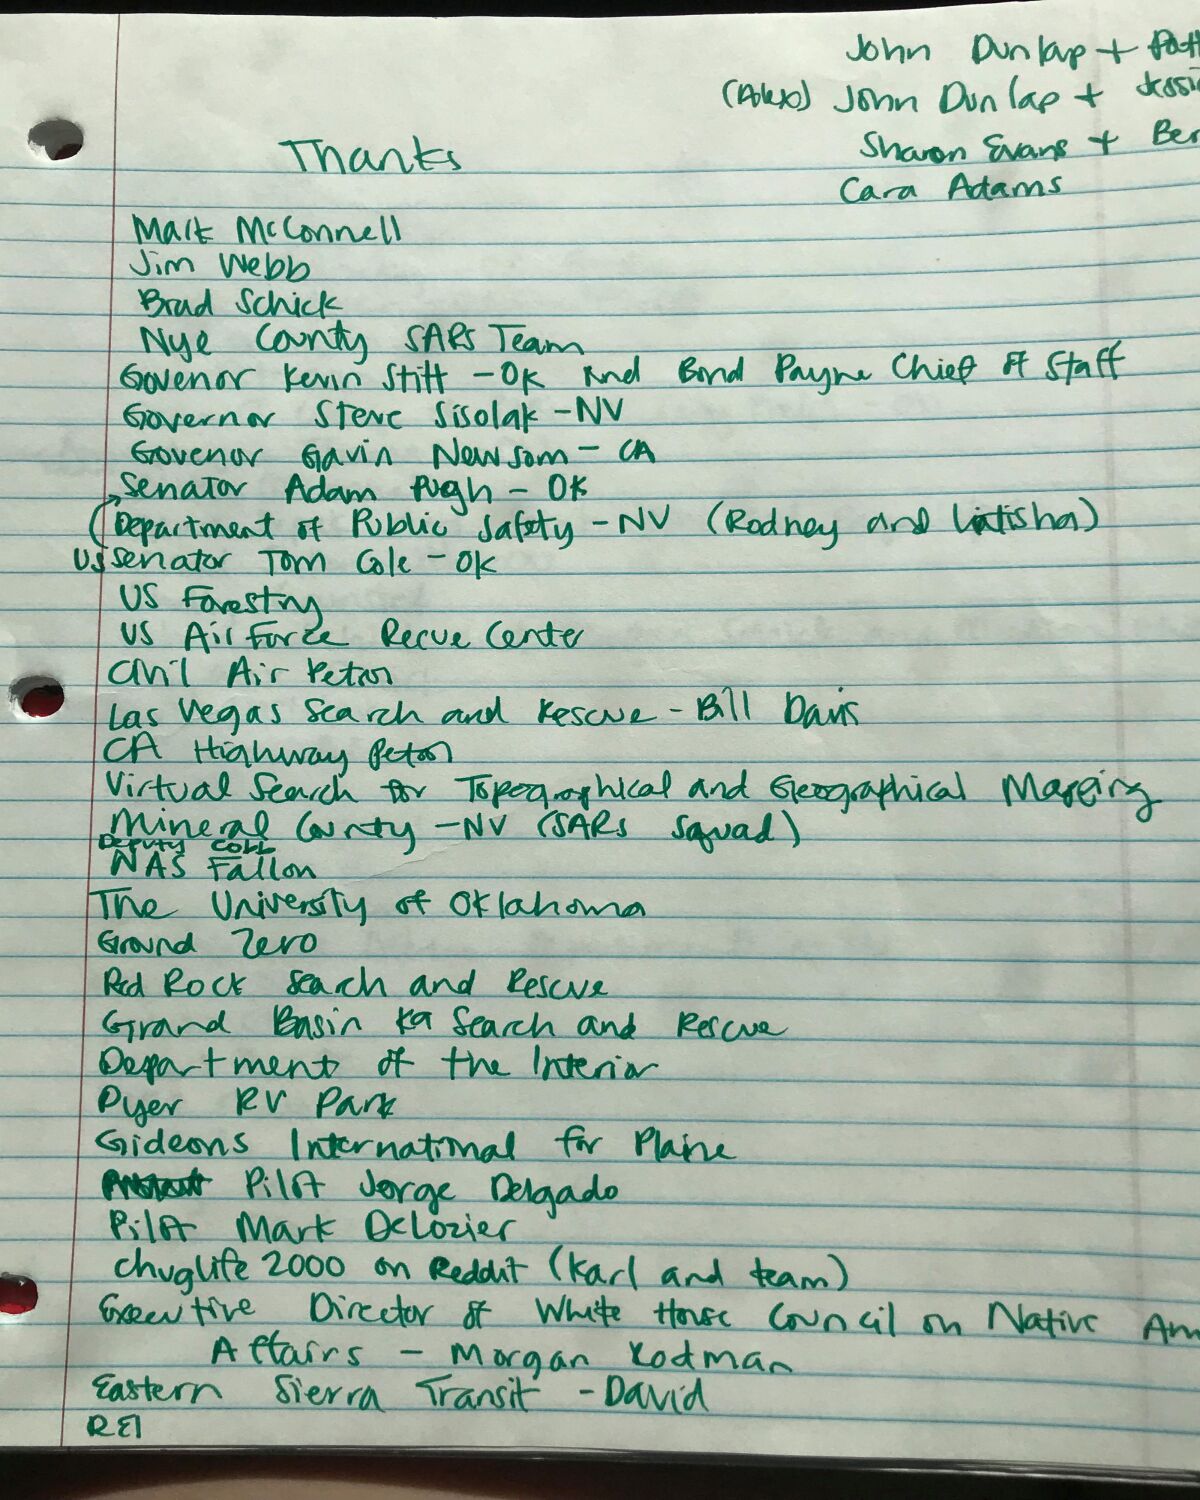 John Dunlap +
(Alex) John Dunlap +
Sharon Evans +
Cara Adams
Thanks
Mark McConnell
Jim Webb
Brad Schick
Nye County SARs Team
Govenor Kevin Stitt - OK and Bond Payne Chief of Staff
Governor Steve Sisolak - NV
Govenor Gavin Newsom - CA
Senator Adam Pugh - OK
(Department of Public Safety - NV (Rodney and Latisha)
US Senator Tom Cole - OK
US Forestry
US Air Force Recue Center
Civil Air Petrol
Las Vegas Search and Rescue - Bill Davis
CA Highway Petrol
Virtual Search for Topographical and Geographical Mapping
Mineral County - NV (SARs Squad)
Deputy
NAS Fallon
The University of Oklahoma
Ground Zero
Red Rock Search and Rescue
Grand Basin K9 Search and Rescue
Department of the Interior
Dyer RV Park
Gideons International for Plaine
Pilot Jorge Delgado
Pilot Mark DeLozier
chuglife2000 on Reddit (Karl and team)
Executive Director of White House Council on Native
Affairs - Morgan Rodman
Eastern Sierra Transit - David
REI